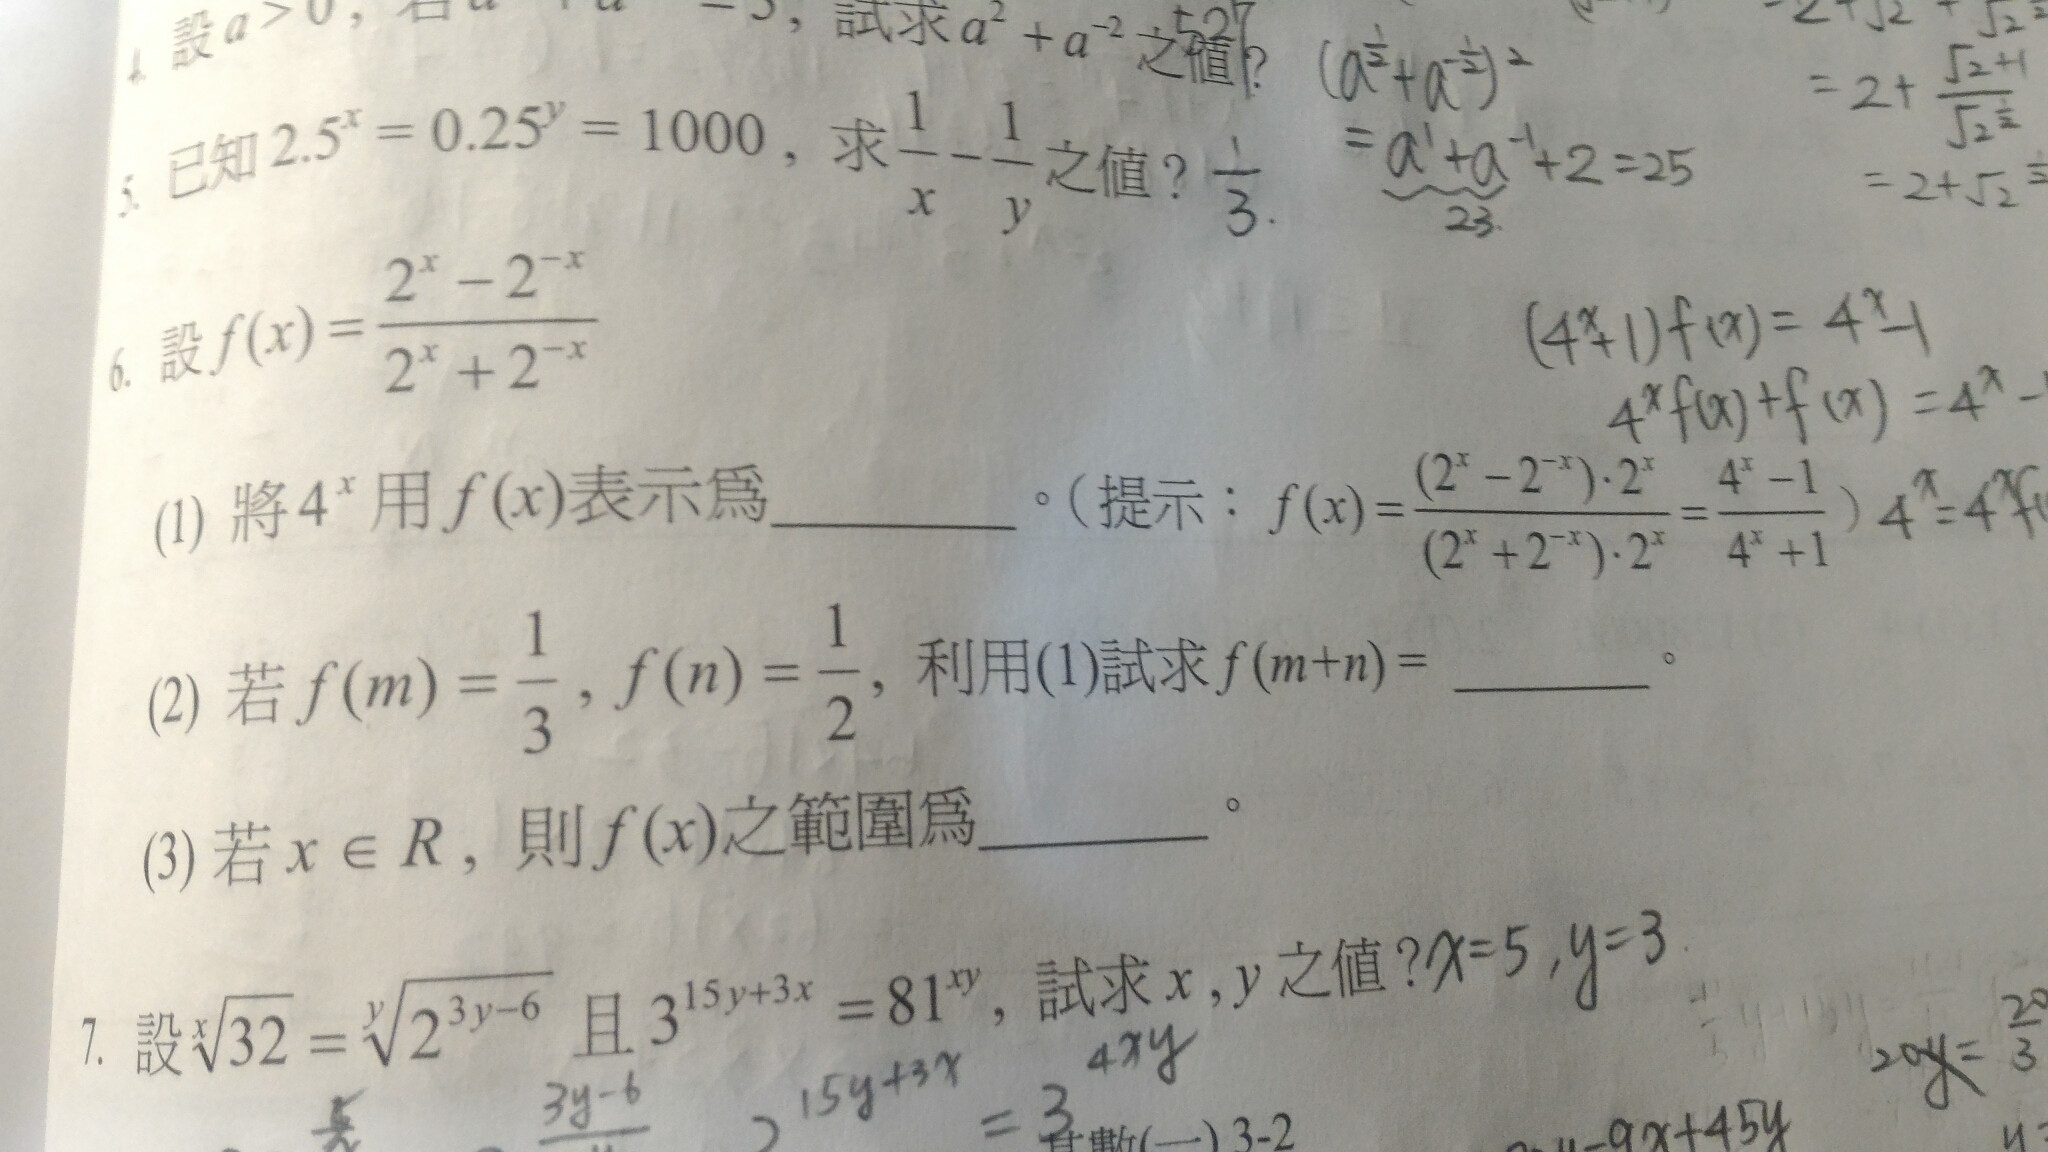 4. 設 a > 0, 若 试求 a² + a⁻² 之值? 527
(a^{1/2} + a^{-1/2})²
= a¹ + a⁻¹ + 2 = 25
23.
= 2 + (√2+1)/√2^{1/2}
= 2 + √2
5. 已知 2.5ˣ = 0.25ʸ = 1000, 求 1/x − 1/y 之值? 1/3.
6. 設 f(x) = (2ˣ − 2⁻ˣ)/(2ˣ + 2⁻ˣ)
(4ˣ+1)f(x) = 4ˣ−1
4ˣf(x)+f(x) = 4ˣ−
(1) 將 4ˣ 用 f(x) 表示為______。(提示: f(x) = ((2ˣ − 2⁻ˣ)·2ˣ)/((2ˣ + 2⁻ˣ)·2ˣ) = (4ˣ − 1)/(4ˣ + 1)) 4ˣ = 4ˣf(
(2) 若 f(m) = 1/3, f(n) = 1/2, 利用(1)試求 f(m+n) = ______。
(3) 若 x ∈ R, 則 f(x) 之範圍為______。
7. 設 ˣ√32 = ʸ√2^{3y−6} 且 3^{15y+3x} = 81^{xy}, 試求 x, y 之值? x=5, y=3
20y = 20/3
3y−6
15y+3x = 3^{4xy}
(一) 3-2
−9x+45y